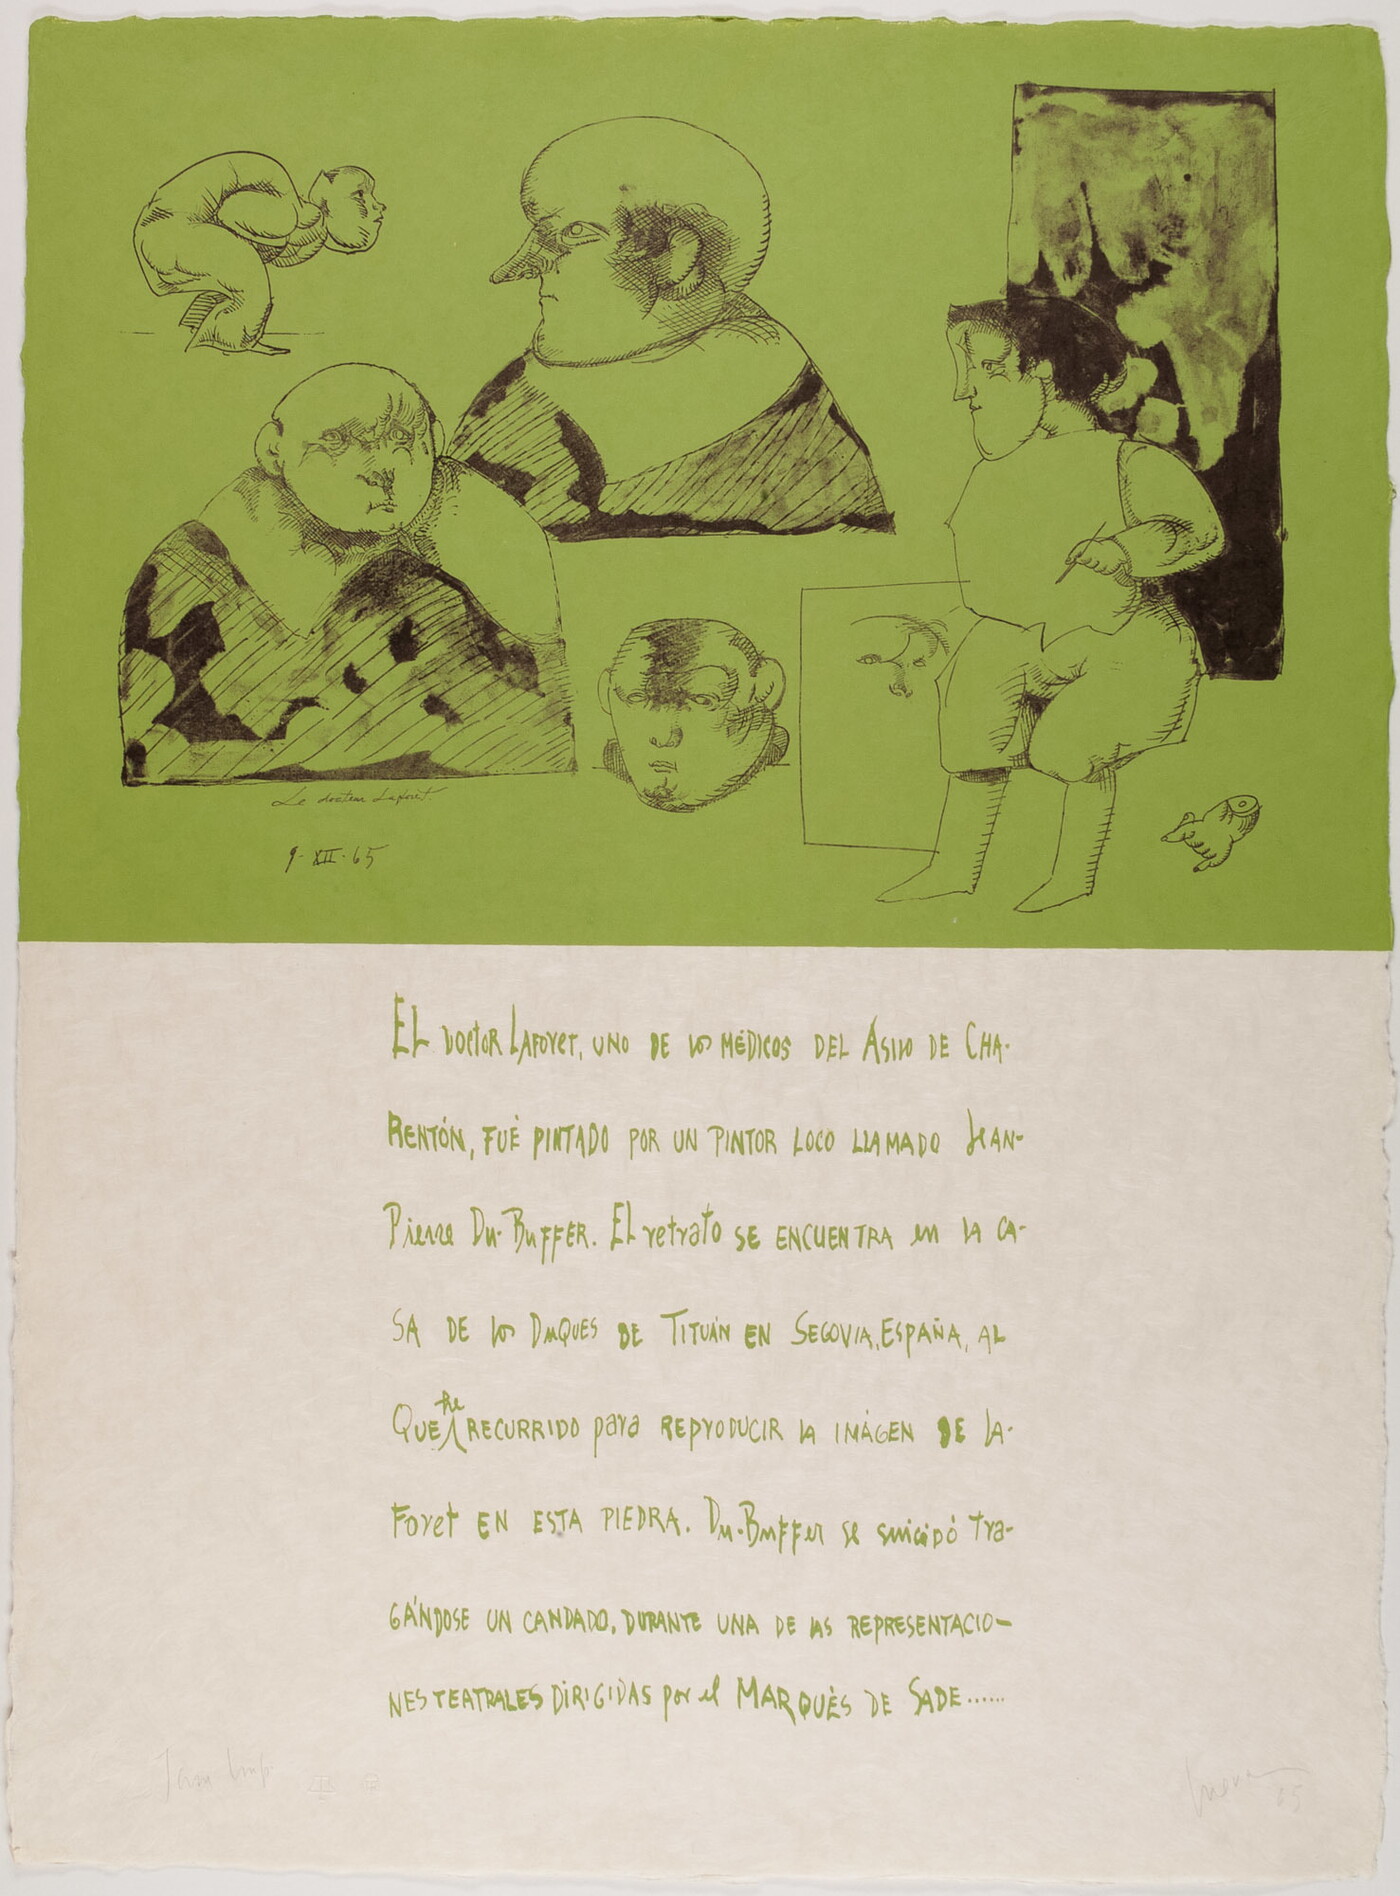 Le docteur Laforet
9·XII·65
EL DOCTOR LAFORET, UNO DE LOS MÉDICOS DEL ASILO DE CHA-
RENTÓN, FUÉ PINTADO POR UN PINTOR LOCO LLAMADO JEAN-
PIERRE DU-BUFFER. EL RETRATO SE ENCUENTRA EN LA CA-
SA DE LOS DUQUES DE TITUÁN EN SEGOVIA, ESPAÑA, AL
QUE HE RECURRIDO PARA REPRODUCIR LA IMÁGEN DE LA-
FORET EN ESTA PIEDRA. DU-BUFFER SE SUICIDÓ TRA-
GÁNDOSE UN CANDADO, DURANTE UNA DE LAS REPRESENTACIO-
NES TEATRALES DIRIGIDAS POR EL MARQUÉS DE SADE......
Tam Imp.
Cuevas 65